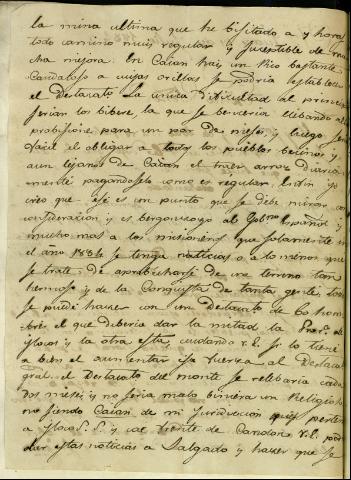 la mina ultima que he bisitado a y hora
todo camino muy regular y suceptible de mu
cha mejora. En Caian hai un Rico bastante
Caudaloso a cuyas orillas se podria establecer
el Destacato la unica dificultad al principio
serian los bibere, la que se benceria llebando al
probisione para un par de meses y luego se
facil el obligar a todos los pueblos becinos y
aun lejanos de Caian el traer arroz diaria
mente pagandoselo como es regular, En fin yo
creo que ese es un punto que se debe mirar con
consideracion y es bergonzoso al Gobno Español y
mucho mas a los misioneros que solamente en
el año 1834 se tenga noticias o a lo menos que
se trate de aprobecharse de un terreno tan
hermoso y de la Conquista de tanta gente, todo
se puede hacer con un Destacato de 60 hom
bres el que deberia dar la mitad la Proa. de
Ylocos y la otra esta cuidando V.E. Sr. lo tiene
a bien el aumentar esa fuerza al Destaca
gral. el Destacato del monte se relebaria cada
dos meses y no seria malo biniera un Religioso
no siendo Caian de mi Jurisdiccion pues perten
a Ylocos S. y cae frente de Candon V.E. pod
dar estas noticias a Salgado y hacer que se